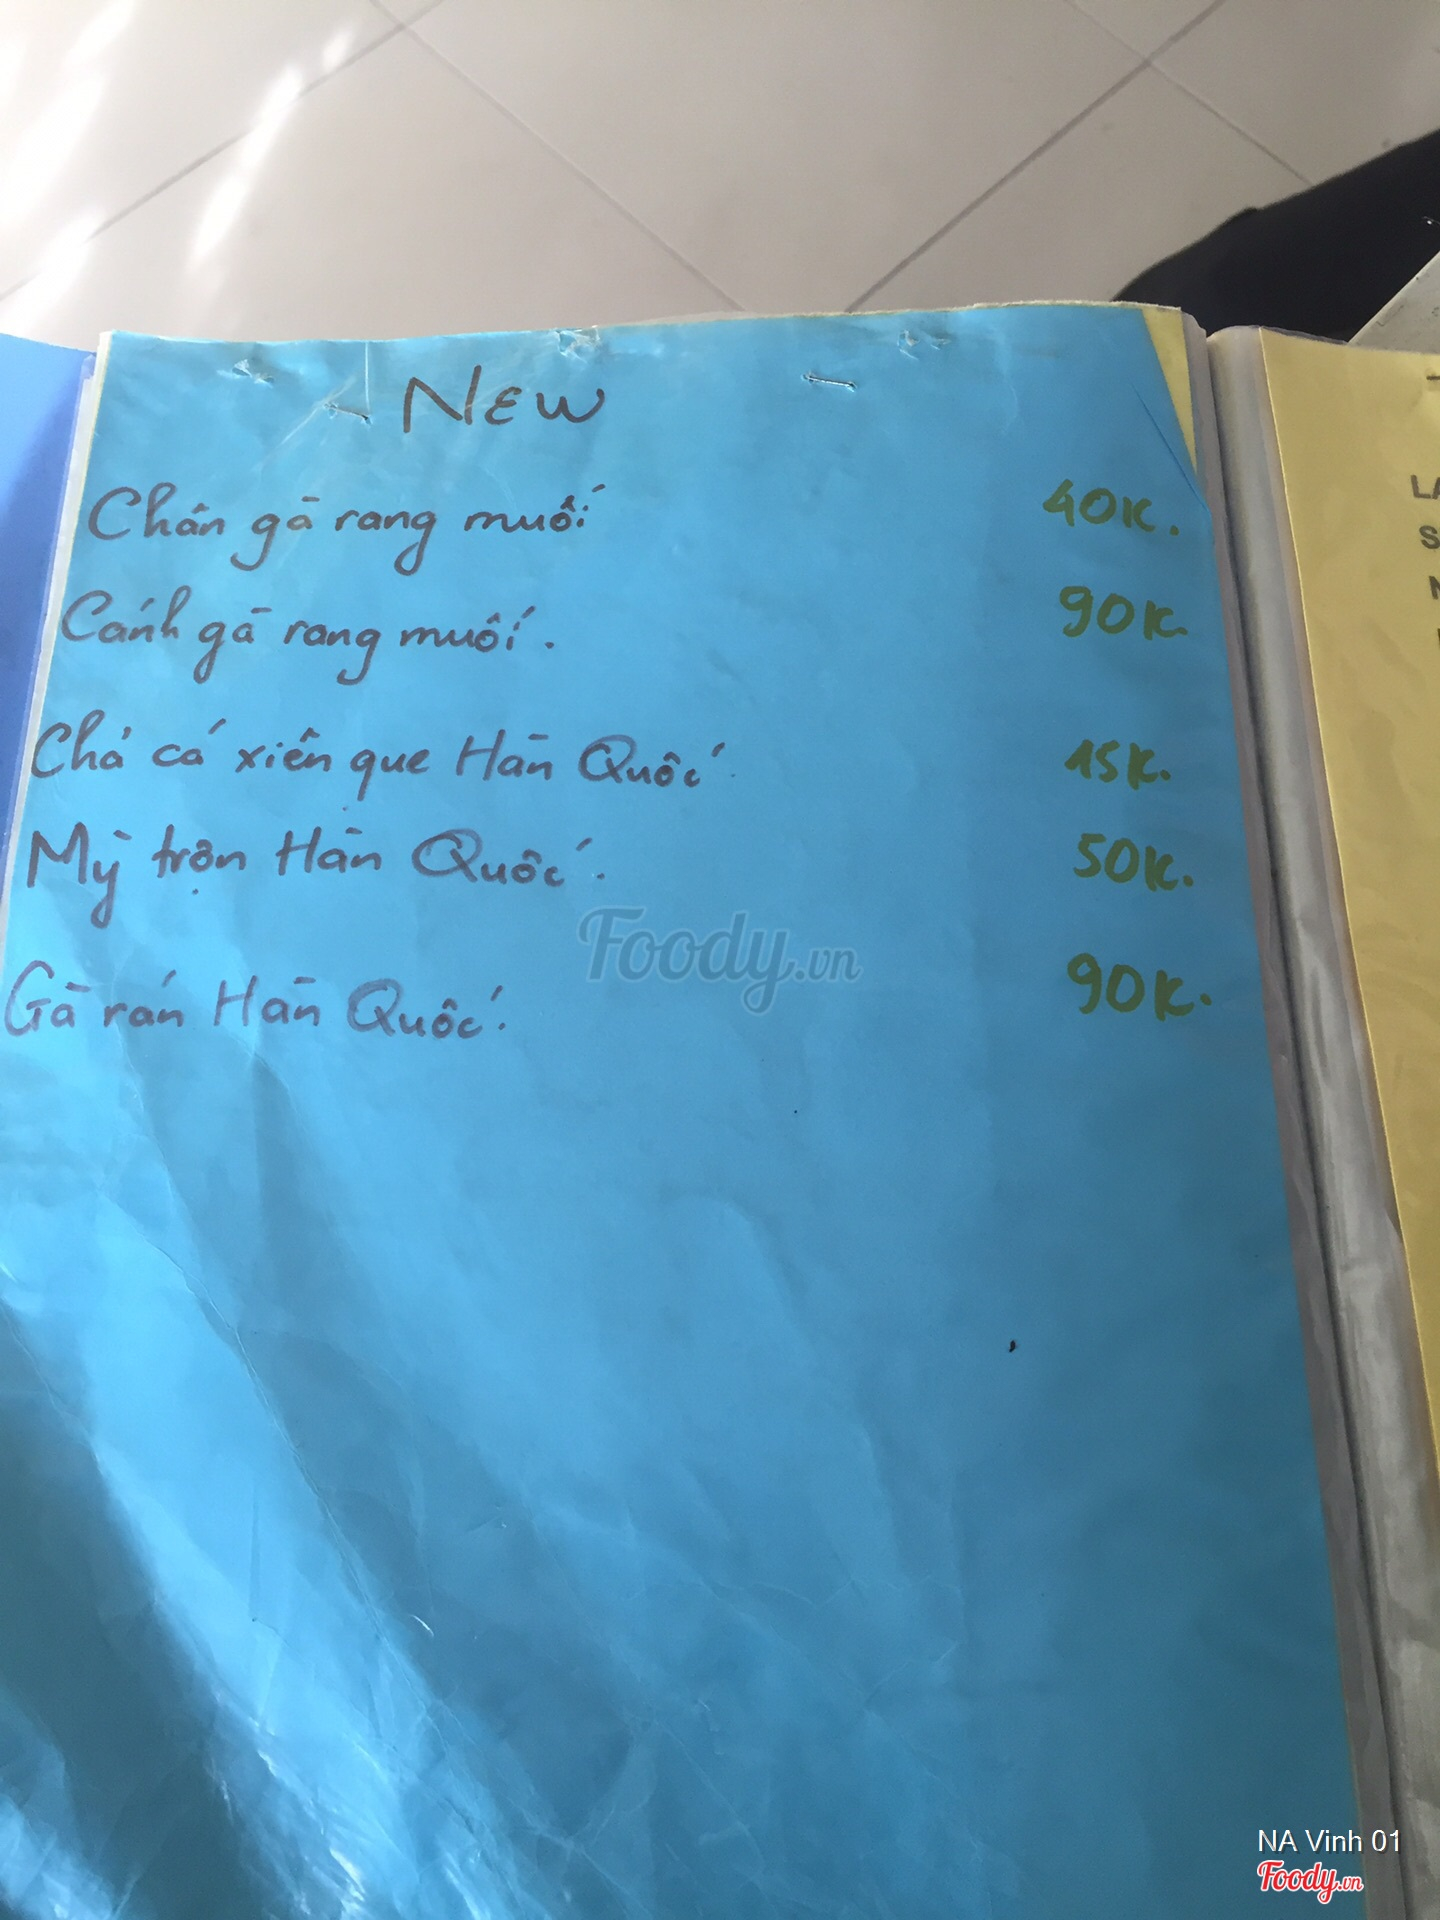 NEW
Chân gà rang muối 40K.
Cánh gà rang muối. 90K.
Chả cá xiên que Hàn Quốc 15K.
Mỳ trộn Hàn Quốc. 50K.
Foody.vn
Gà rán Hàn Quốc. 90K.
NA Vinh 01
Foody.vn